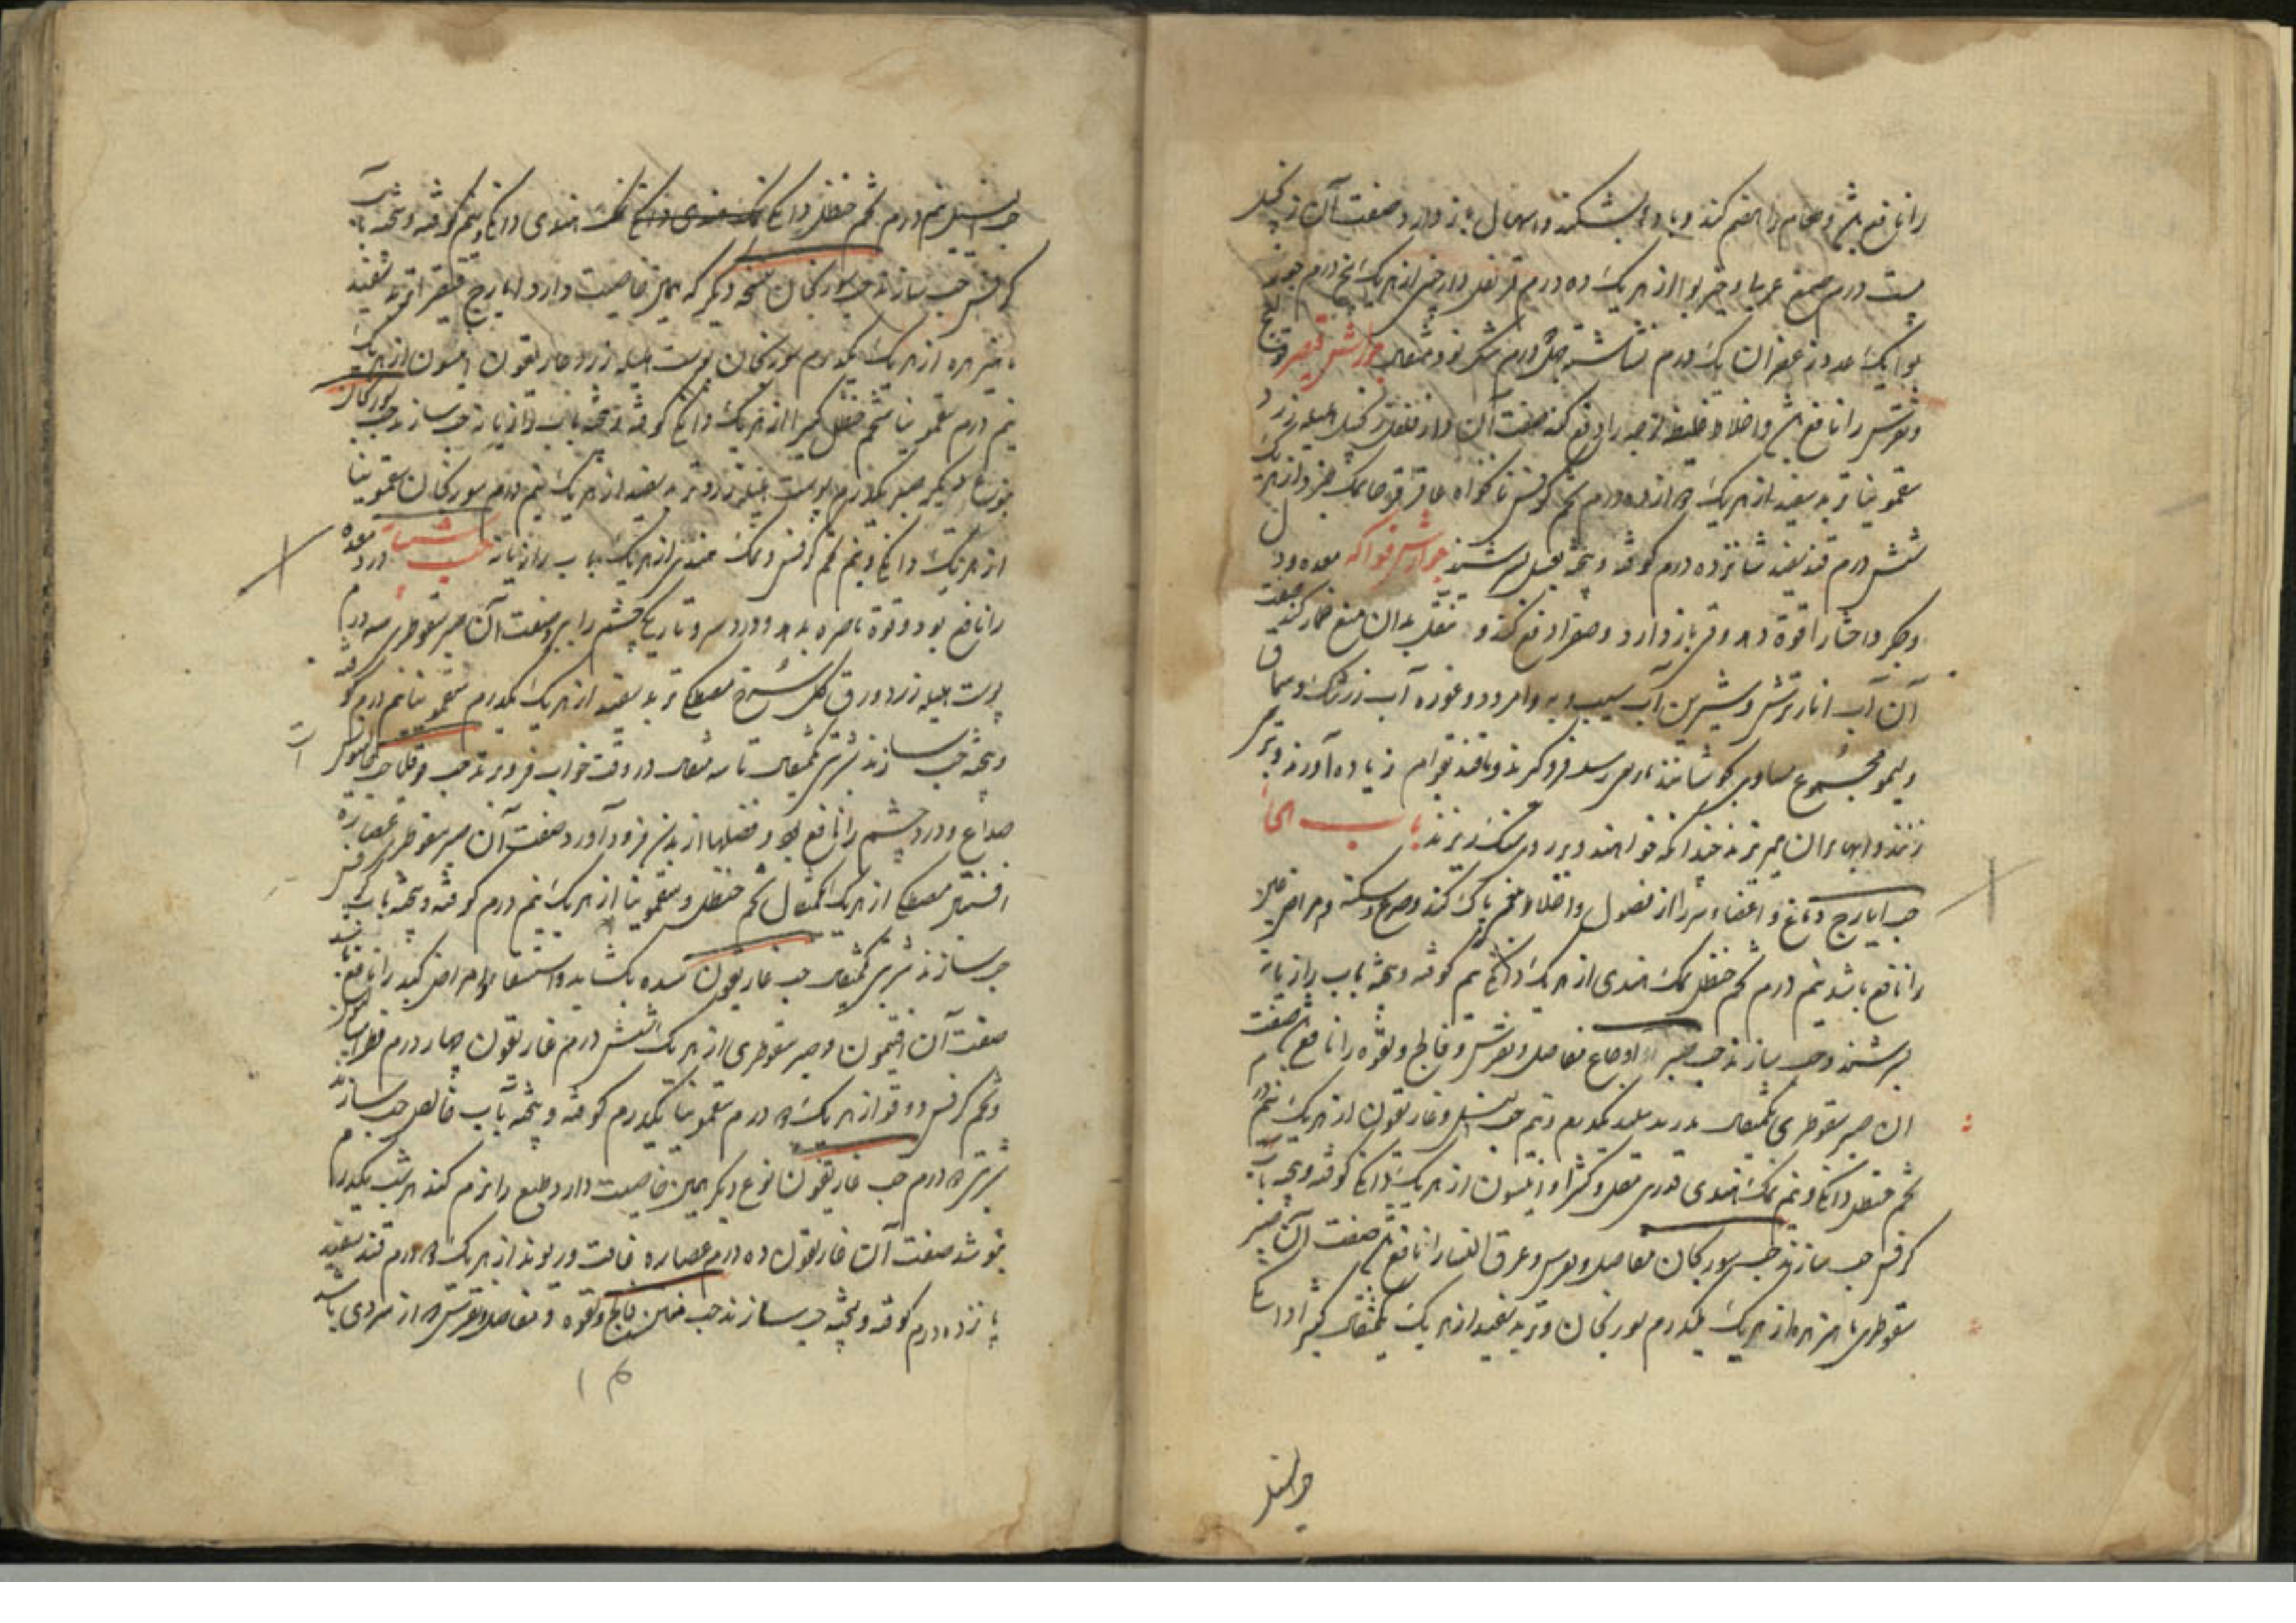 را نافع باشد و طعام را هضم کند و بادها بشکند و اسهال باز دارد صفت آن زنجبیل
بیست درم صمغ عربی و خیربوا از هریک ده درم قرنفل دارچینی از هریک پنج درم جوز
بوا یک عدد زعفران یک درم نشاسته چهل درم مشک نو دو مثقال جوارش قیصر قولنج
و نقرس را نافع باشد و اخلاط غلیظ لزجه را دفع کند صفت آن دارفلفل زنجبیل هلیله زرد
سقمونیا تربد سفید از هریک دوازده درم تخم کرفس نانخواه عاقرقرحا نمک از هریک
شش درم قند سفید شانزده درم کوفته و بیخته بعسل بسرشند جوارش فواکه معده و دل
و جگر و احشا را قوة دهد و قی باز دارد و صفرا دفع کند و تنقل بدان منع خمار کند صفت
آن آب انار ترش و شیرین آب سیب و به و امرود و غوره آب زرشک و سماق
و لیمو مجموع مساوی بجوشانند تا برسد فرو گیرند و با قند بقوام زیاده آورند و بر
زنند و آبها بران میریزند چندانکه خواهند و بر روی سنگ ریزند باب الحا
حب ایارج دماغ و اعضاء سر را از فضول و اخلاط بلغم پاک کند و صرع و سکته و امراض
را نافع باشد نیم درم شحم حنظل نمک هندی از هریک دانگی نیم کوفته و بیخته بآب رازیانه
بسرشند و حب سازند حب صبر اوجاع مفاصل و نقرس و فالج و لقوه را نافع باشد صفت
آن صبر سقوطری یکمثقال تربد سفید یکدرم و نیم حب النیل و غاریقون از هریک نیم درم
شحم حنظل دانگی و نیم نمک هندی قدری مقل و کتیرا و انیسون از هریک دانگی کوفته و بیخته بآب
کرفس حب سازند حب سورنجان مفاصل و نقرس و عرق النسا را نافع باشد صفت آن صبر
سقوطری ماهیزهره از هریک یکدرم سورنجان و تربد سفید از هریک یکمثقال کتیرا دانگی
حب النیل
حب النیل نیم درم شحم حنظل دانگی نمک هندی دانگی نمک هندی دانگی و نیم کوفته و بیخته بآب
کرفس حب سازند حب سورنجان نسخه دیگر که همین خاصیت دارد ایارج فیقرا تربد سفید
ماهیزهره از هریک یکدرم سورنجان پوست هلیله زرد غاریقون انیسون از هریک
نیم درم سقمونیا شحم حنظل کتیرا از هریک دانگی کوفته و بیخته بآب رازیانه حب سازند حب سورنجان
نوع دیگر صبر یکدرم پوست هلیله زرد تربد سفید از هریک نیم درم سورنجان سقمونیا
از هریک دانگی و نیم تخم کرفس و نمک هندی از هریک بآب رازیانه حب شبیار درد معده
را نافع بود و قوة باصره بدهد و درد سر و تاریکی چشم را ببرد صفت آن صبر سقوطری سه درم
پوست هلیله زرد ورق گل سرخ مصطکی تربد سفید از هریک یکدرم سقمونیا نیم درم کوفته
و بیخته حب سازند شربتی یکمثقال تا سه مثقال در وقت خواب فرو برند حب
صداع و درد چشم را نافع بود و فضلها از بدن فرود آورد صفت آن صبر سقوطری عصاره
افسنتین مصطکی از هریک یکمثقال شحم حنظل و سقمونیا از هریک نیم درم کوفته و بیخته بآب کرفس
حب سازند شربتی یکمثقال حب غاریقون سده بگشاید و استسقا و امراض کبد را نافع باشد
صفت آن افتیمون و صبر سقوطری از هریک شش درم غاریقون چهار درم
و تخم کرفس دوقو از هریک دو درم سقمونیا یکدرم کوفته و بیخته بآب خالص حب سازند
شربتی دو درم حب غاریقون نوع دیگر همین خاصیت دارد و طبع را نرم کند هر شب یکدرم
بنوشد صفت آن غاریقون ده درم عصاره غافت و ریوند از هریک دو درم قند سفید
پانزده درم کوفته و بیخته حب سازند حب منتن فالج و لقوه و مفاصل و نقرس که از سردی باشد